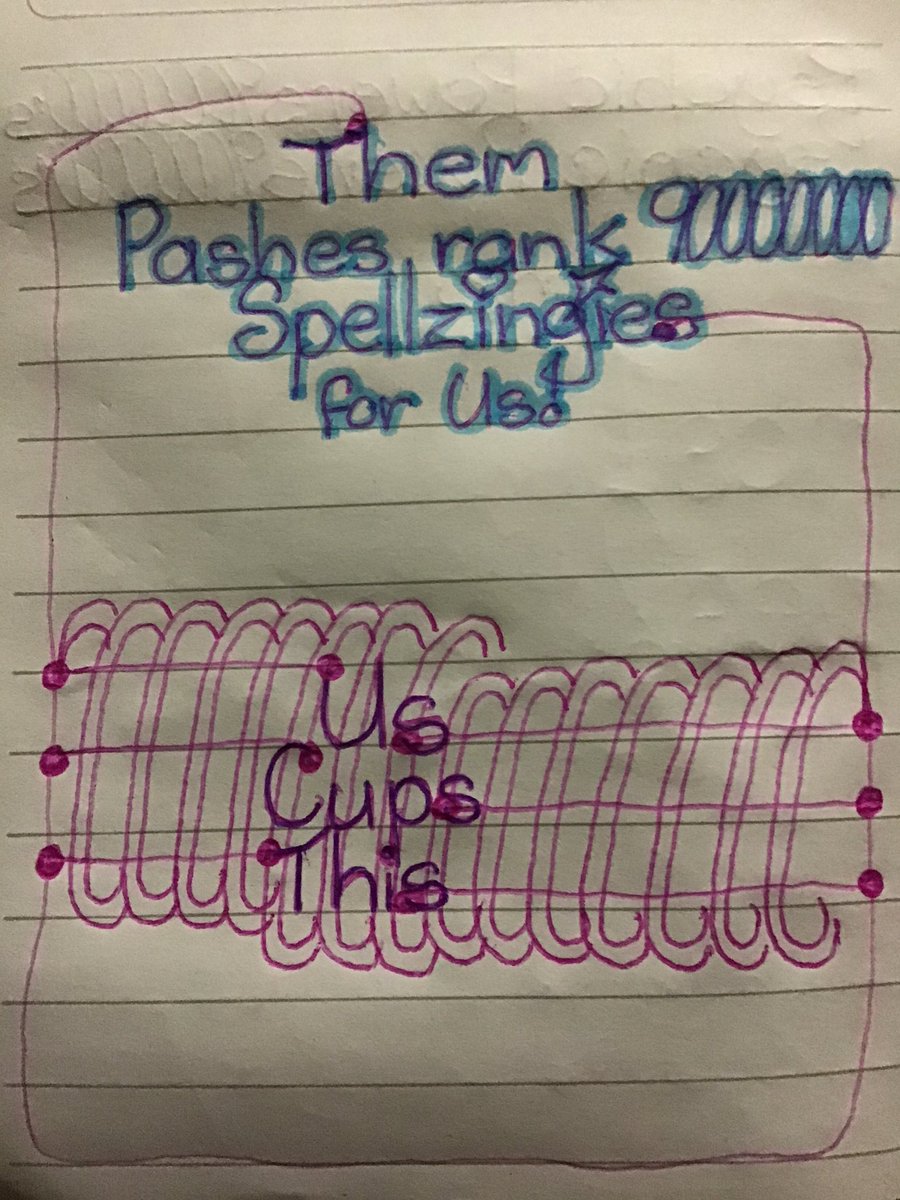 Them
Pashes rank 90000000
Spellzingies
for Us!
Us
Cups
This